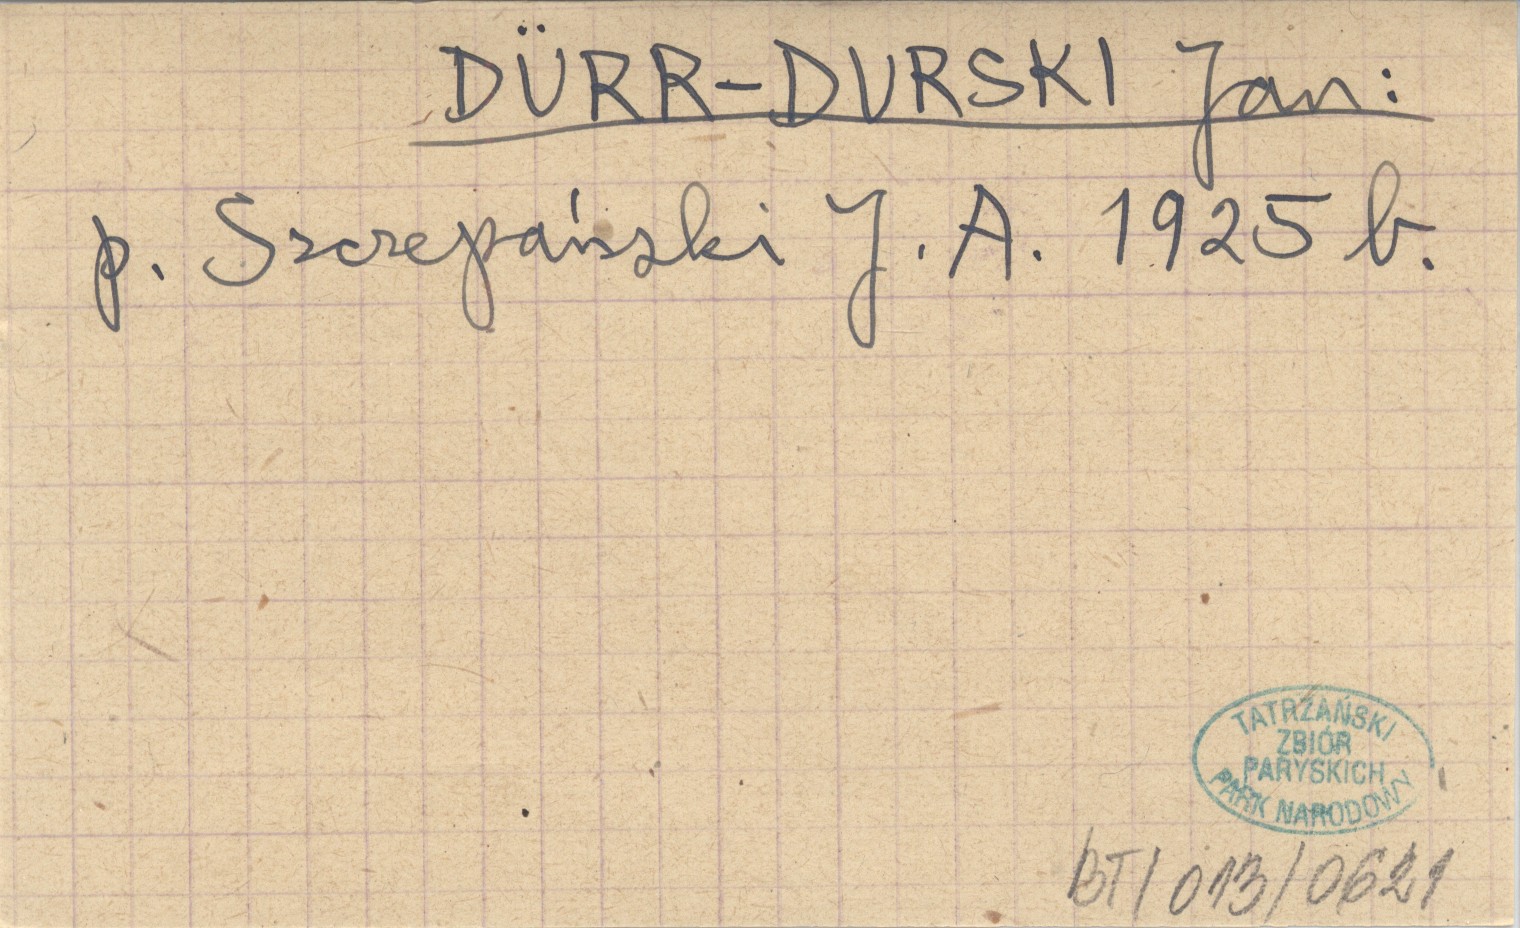 DÜRR-DURSKI Jan:
p. Szczepański J. A. 1925 b.
TATRZAŃSKI
ZBIÓR
PARYSKICH
PARK NARODOWY
BT/013/0621